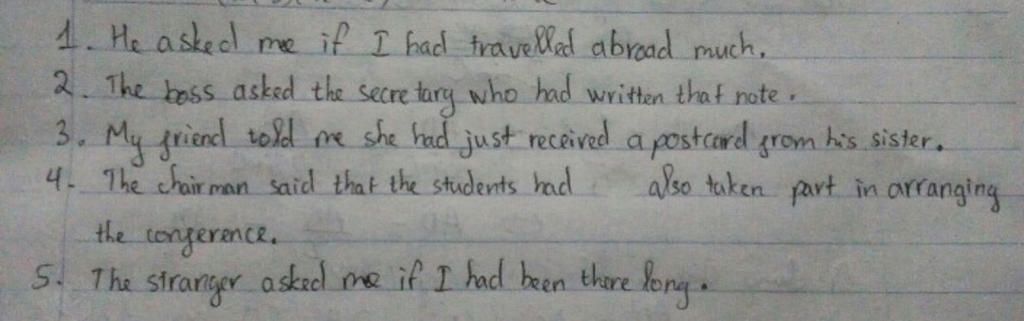 1. He asked me if I had travelled abroad much.
2. The boss asked the secretary who had written that note.
3. My friend told me she had just received a postcard from his sister.
4. The chairman said that the students had also taken part in arranging
the conference.
5. The stranger asked me if I had been there long.